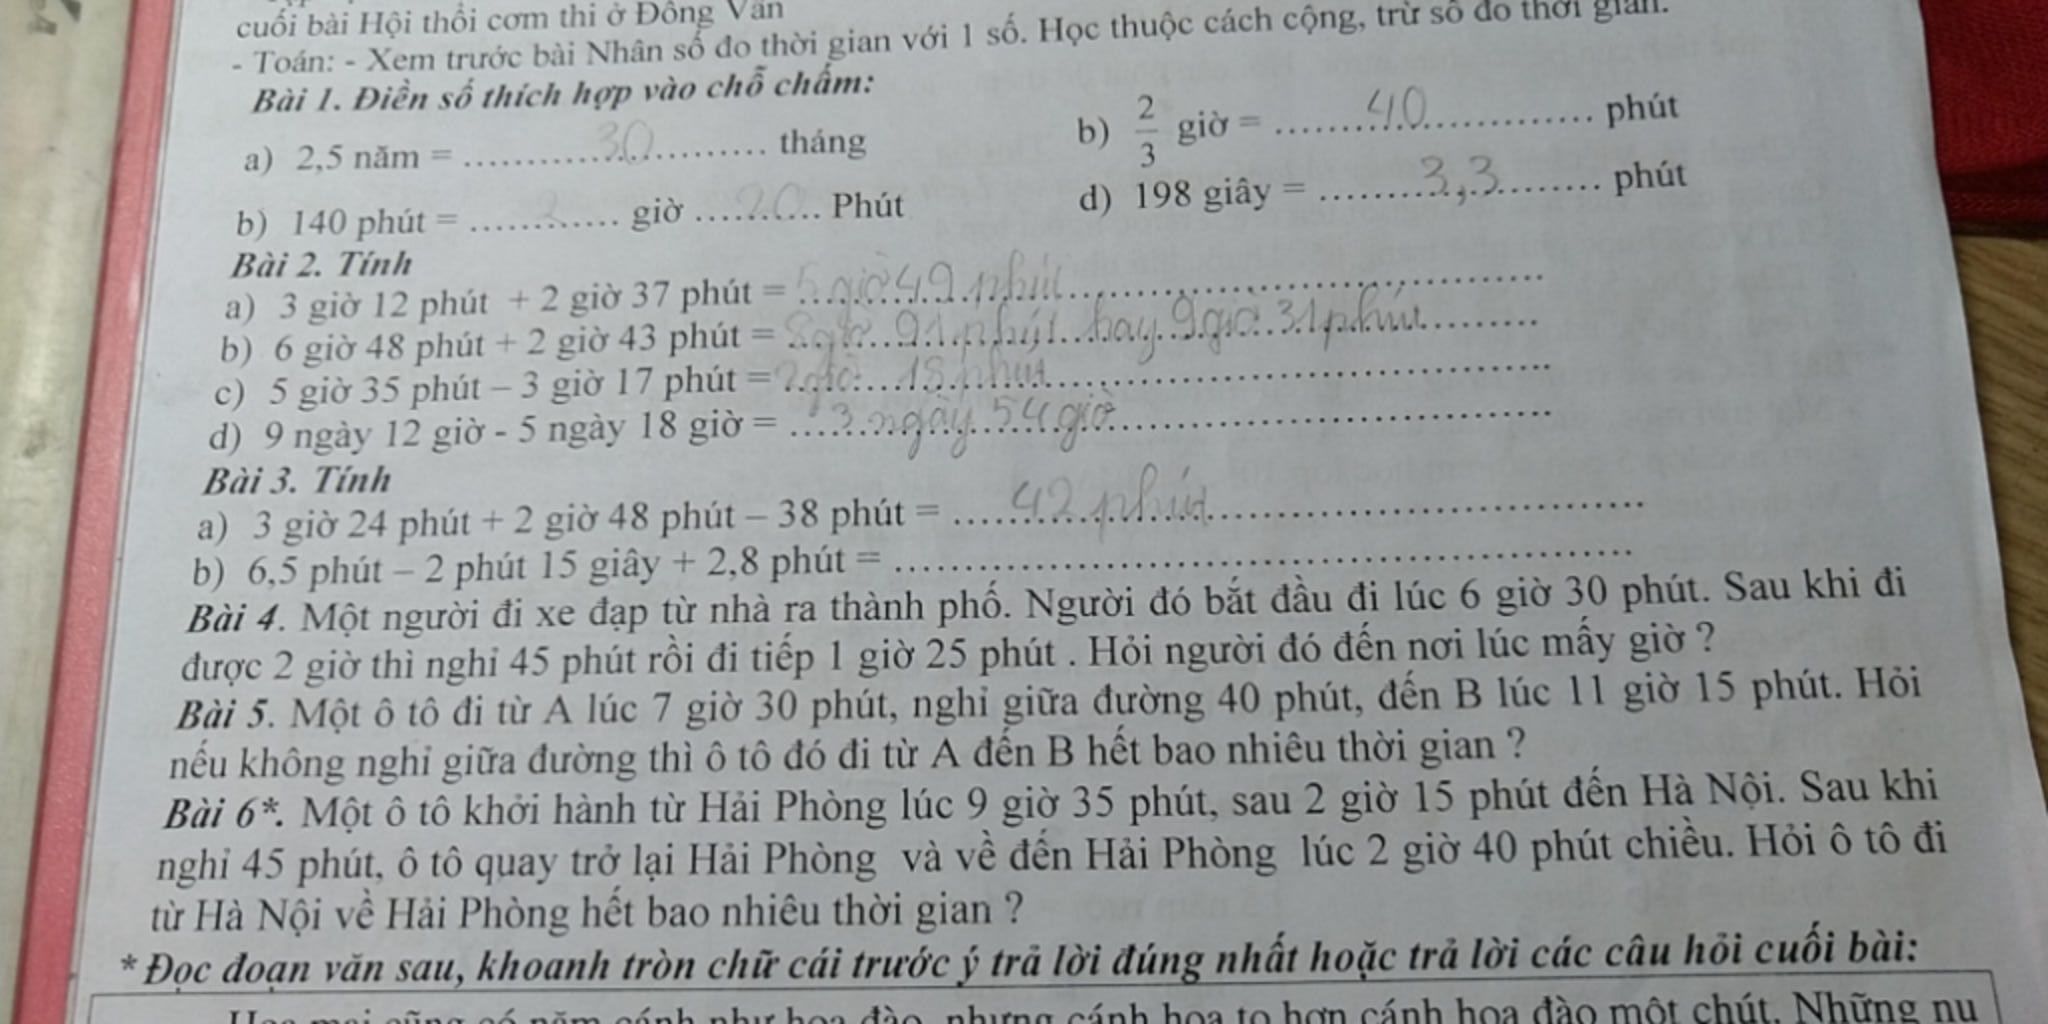 cuối bài Hội thổi cơm thi ở Đồng Vân
- Toán: - Xem trước bài Nhân số đo thời gian với 1 số. Học thuộc cách cộng, trừ số đo thời gian.
Bài 1. Điền số thích hợp vào chỗ chấm:
a) 2,5 năm = ........30........ tháng
b) 2/3 giờ = ........40........ phút
b) 140 phút = ....2.... giờ ....20.... Phút
d) 198 giây = ........3,3........ phút
Bài 2. Tính
a) 3 giờ 12 phút + 2 giờ 37 phút = 5 giờ 49 phút
b) 6 giờ 48 phút + 2 giờ 43 phút = 8 giờ 91 phút hay 9 giờ 31 phút
c) 5 giờ 35 phút – 3 giờ 17 phút = 2 giờ 18 phút
d) 9 ngày 12 giờ - 5 ngày 18 giờ = 3 ngày 54 giờ
Bài 3. Tính
a) 3 giờ 24 phút + 2 giờ 48 phút – 38 phút = 42 phút
b) 6,5 phút – 2 phút 15 giây + 2,8 phút = ........
Bài 4. Một người đi xe đạp từ nhà ra thành phố. Người đó bắt đầu đi lúc 6 giờ 30 phút. Sau khi đi
được 2 giờ thì nghỉ 45 phút rồi đi tiếp 1 giờ 25 phút . Hỏi người đó đến nơi lúc mấy giờ ?
Bài 5. Một ô tô đi từ A lúc 7 giờ 30 phút, nghỉ giữa đường 40 phút, đến B lúc 11 giờ 15 phút. Hỏi
nếu không nghỉ giữa đường thì ô tô đó đi từ A đến B hết bao nhiêu thời gian ?
Bài 6*. Một ô tô khởi hành từ Hải Phòng lúc 9 giờ 35 phút, sau 2 giờ 15 phút đến Hà Nội. Sau khi
nghỉ 45 phút, ô tô quay trở lại Hải Phòng và về đến Hải Phòng lúc 2 giờ 40 phút chiều. Hỏi ô tô đi
từ Hà Nội về Hải Phòng hết bao nhiêu thời gian ?
* Đọc đoạn văn sau, khoanh tròn chữ cái trước ý trả lời đúng nhất hoặc trả lời các câu hỏi cuối bài:
Hoa mai cũng có năm cánh như hoa đào, nhưng cánh hoa to hơn cánh hoa đào một chút. Những nụ